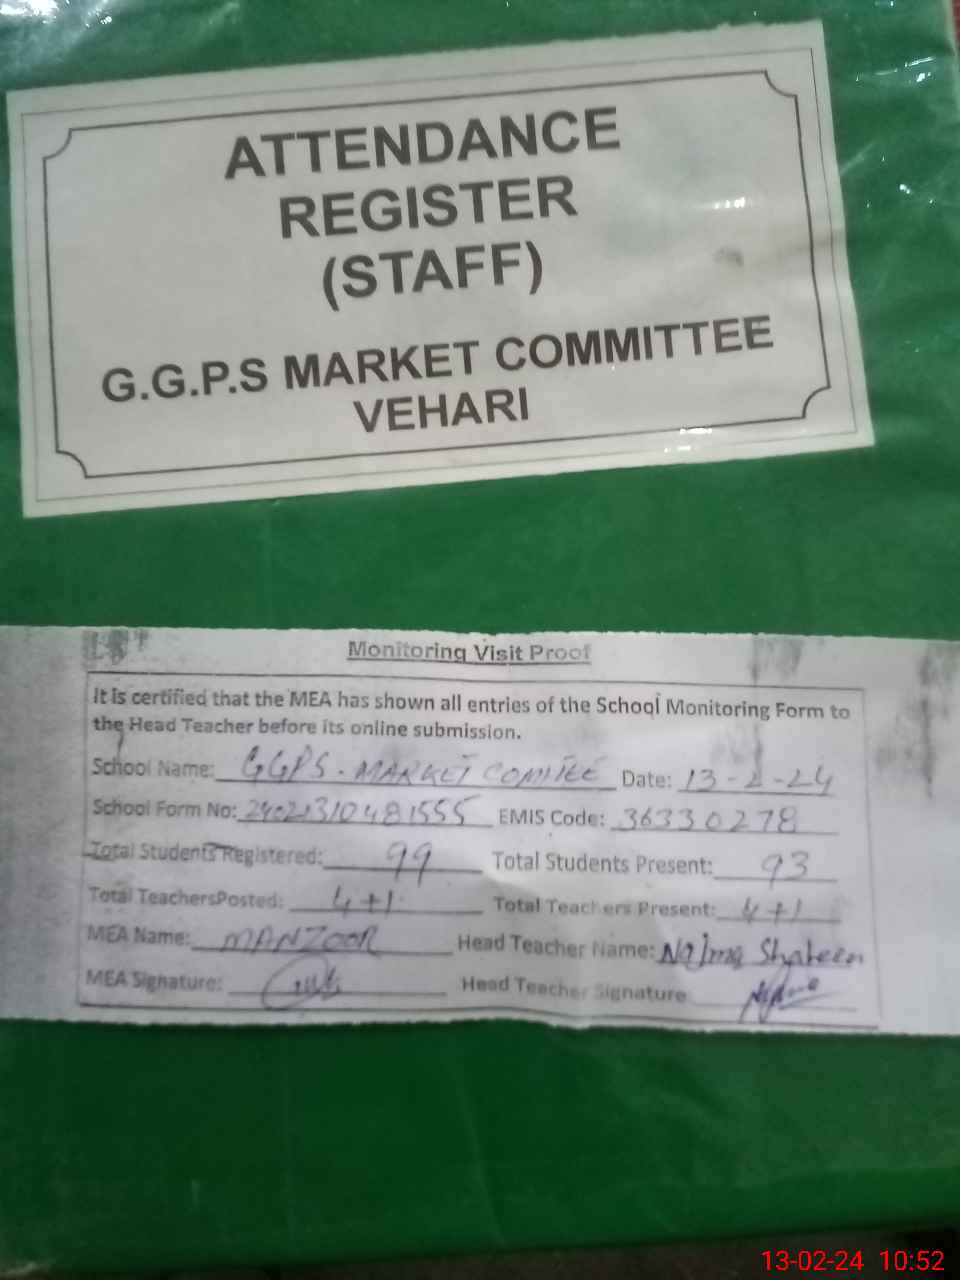 ATTENDANCE
REGISTER
(STAFF)
G.G.P.S MARKET COMMITTEE
VEHARI
Monitoring Visit Proof
It is certified that the MEA has shown all entries of the School Monitoring Form to
the Head Teacher before its online submission.
School Name: GGPS. MARKET COMITEE Date: 13-2-24
School Form No: 24021310481555 EMIS Code: 36330278
Total Students Registered: 99 Total Students Present: 93
Total TeachersPosted: 4+1 Total Teachers Present: 4+1
MEA Name: MANZOOR Head Teacher Name: Najma Shaheen
MEA Signature: Head Teacher Signature
13-02-24 10:52